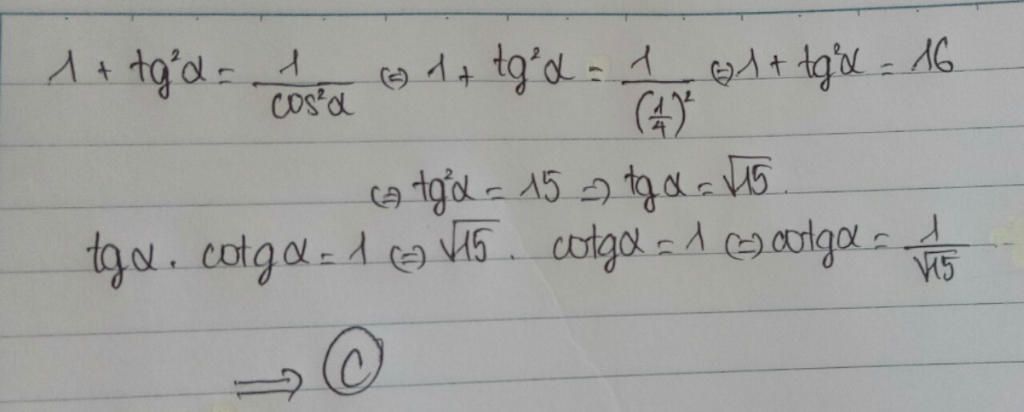 1 + tg²α = 1/cos²α ⇔ 1 + tg²α = 1/(1/4)² ⇔ 1 + tg²α = 16
⇔ tg²α = 15 ⇒ tgα = √15.
tgα . cotgα = 1 ⇔ √15 . cotgα = 1 ⇔ cotgα = 1/√15
⇒ Ⓒ